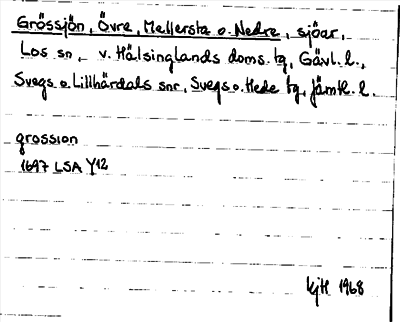 Grössjön, Övre, Mellersta o. Nedre, sjöar,
Los sn, v. Hälsinglands doms. tg, Gävl. l.,
Svegs o. Lillhärdals snr, Svegs o. Hede tg, Jämtl. l.
grossion
1697 LSA Y12
kjH 1968